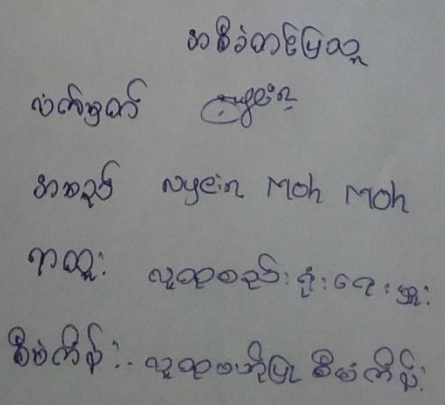 အစီခံတင်ပြသူ
လက်မှတ်
အမည် Moh Moh
ရာထူး လူထုစည်းရုံးရေးမှူး
စီမံကိန်း - လူထုဗဟိုပြု စီမံကိန်း